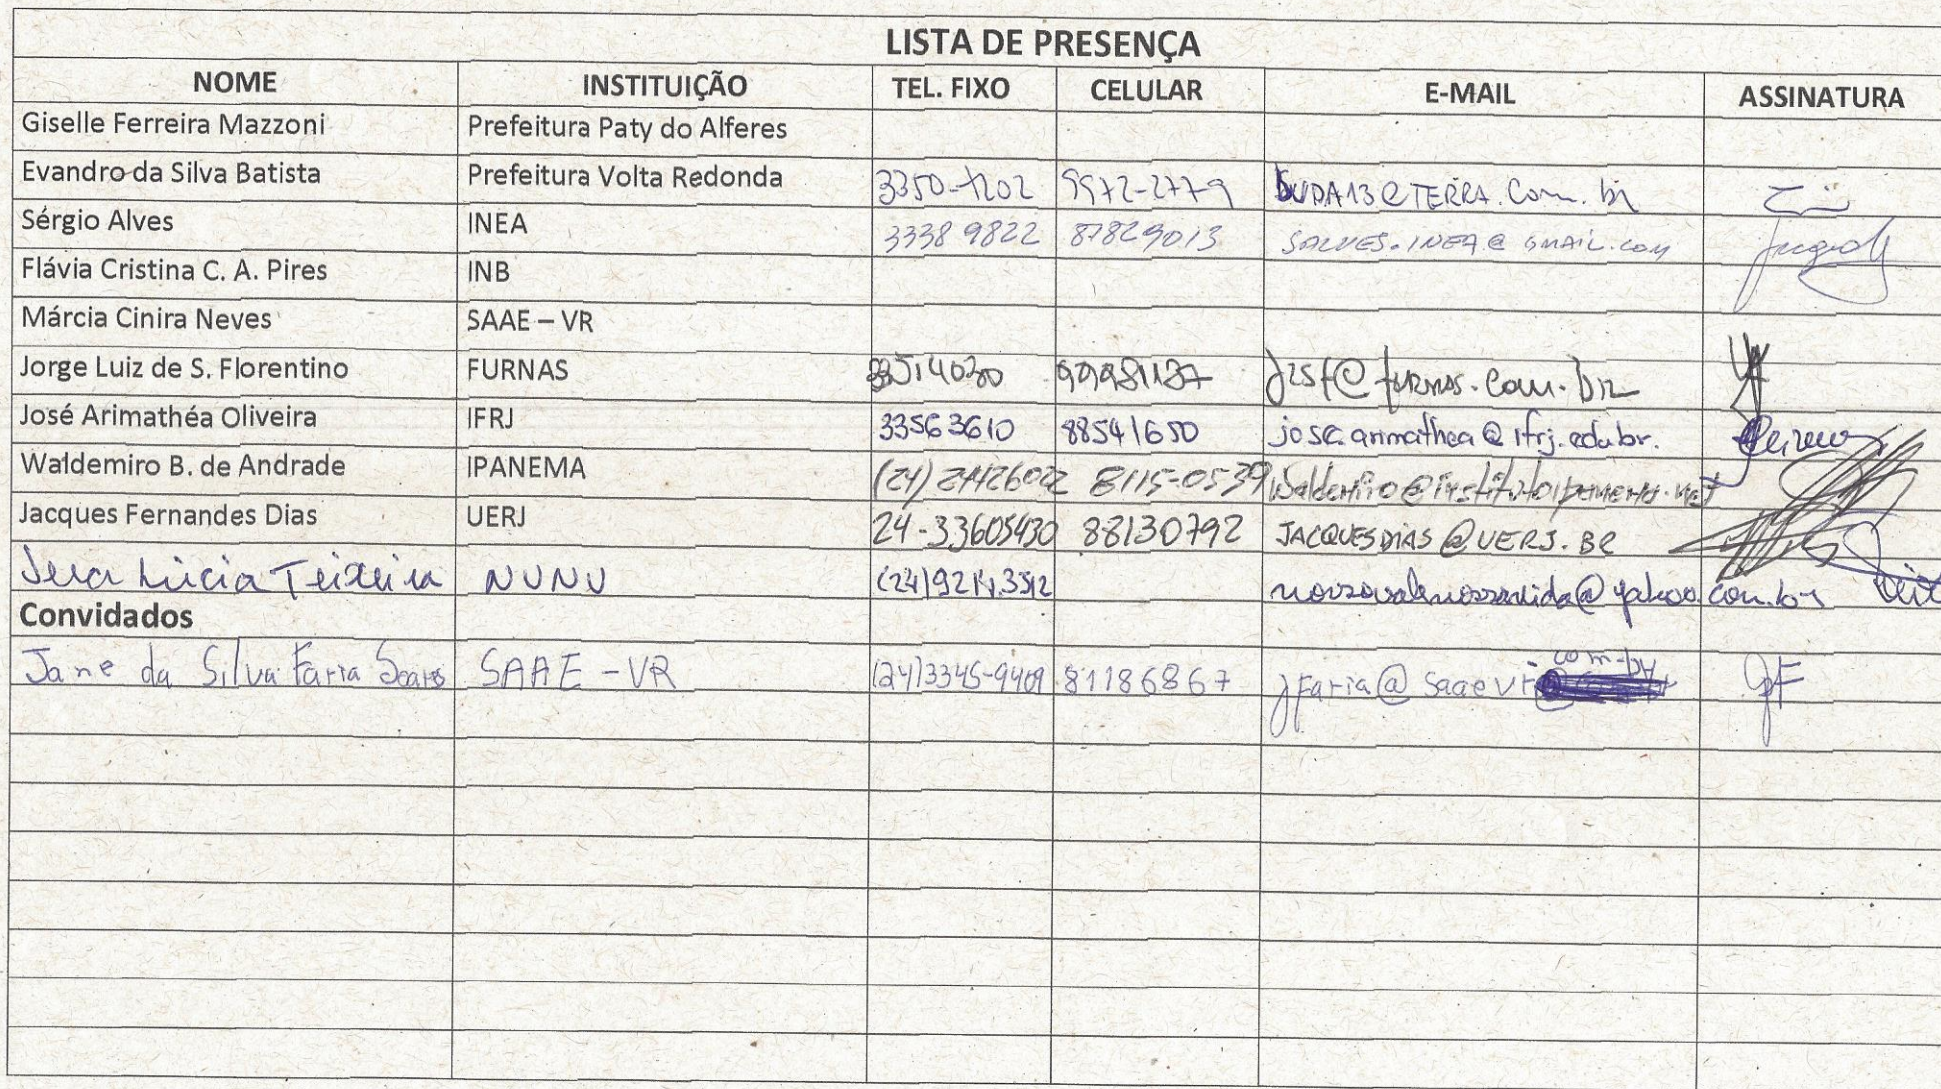 LISTA DE PRESENÇA
NOME INSTITUIÇÃO TEL. FIXO CELULAR E-MAIL ASSINATURA
Giselle Ferreira Mazzoni Prefeitura Paty do Alferes
Evandro da Silva Batista Prefeitura Volta Redonda 3350-7202 9972-2779 BUDA13@TERRA.Com.br
Sérgio Alves INEA 3338 9822 87829013 SALVES.INEA@GMAIL.COM
Flávia Cristina C. A. Pires INB
Márcia Cinira Neves SAAE – VR
Jorge Luiz de S. Florentino FURNAS
José Arimathéa Oliveira IFRJ 33563610 88541650 jose.arimathea@ifrj.edu.br.
Waldemiro B. de Andrade IPANEMA 8115-0539
Jacques Fernandes Dias UERJ 24-33605430 88130792 JACQUESDIAS@UERJ.BR
Vera Lúcia Teixeira NVNV (24)9214.3512 nossovalenossavida@yahoo.com.br
Convidados
Jane da Silva Faria Soares SAAE-VR (24)3345-9409 81186867 jfaria@saaevr com.br JF